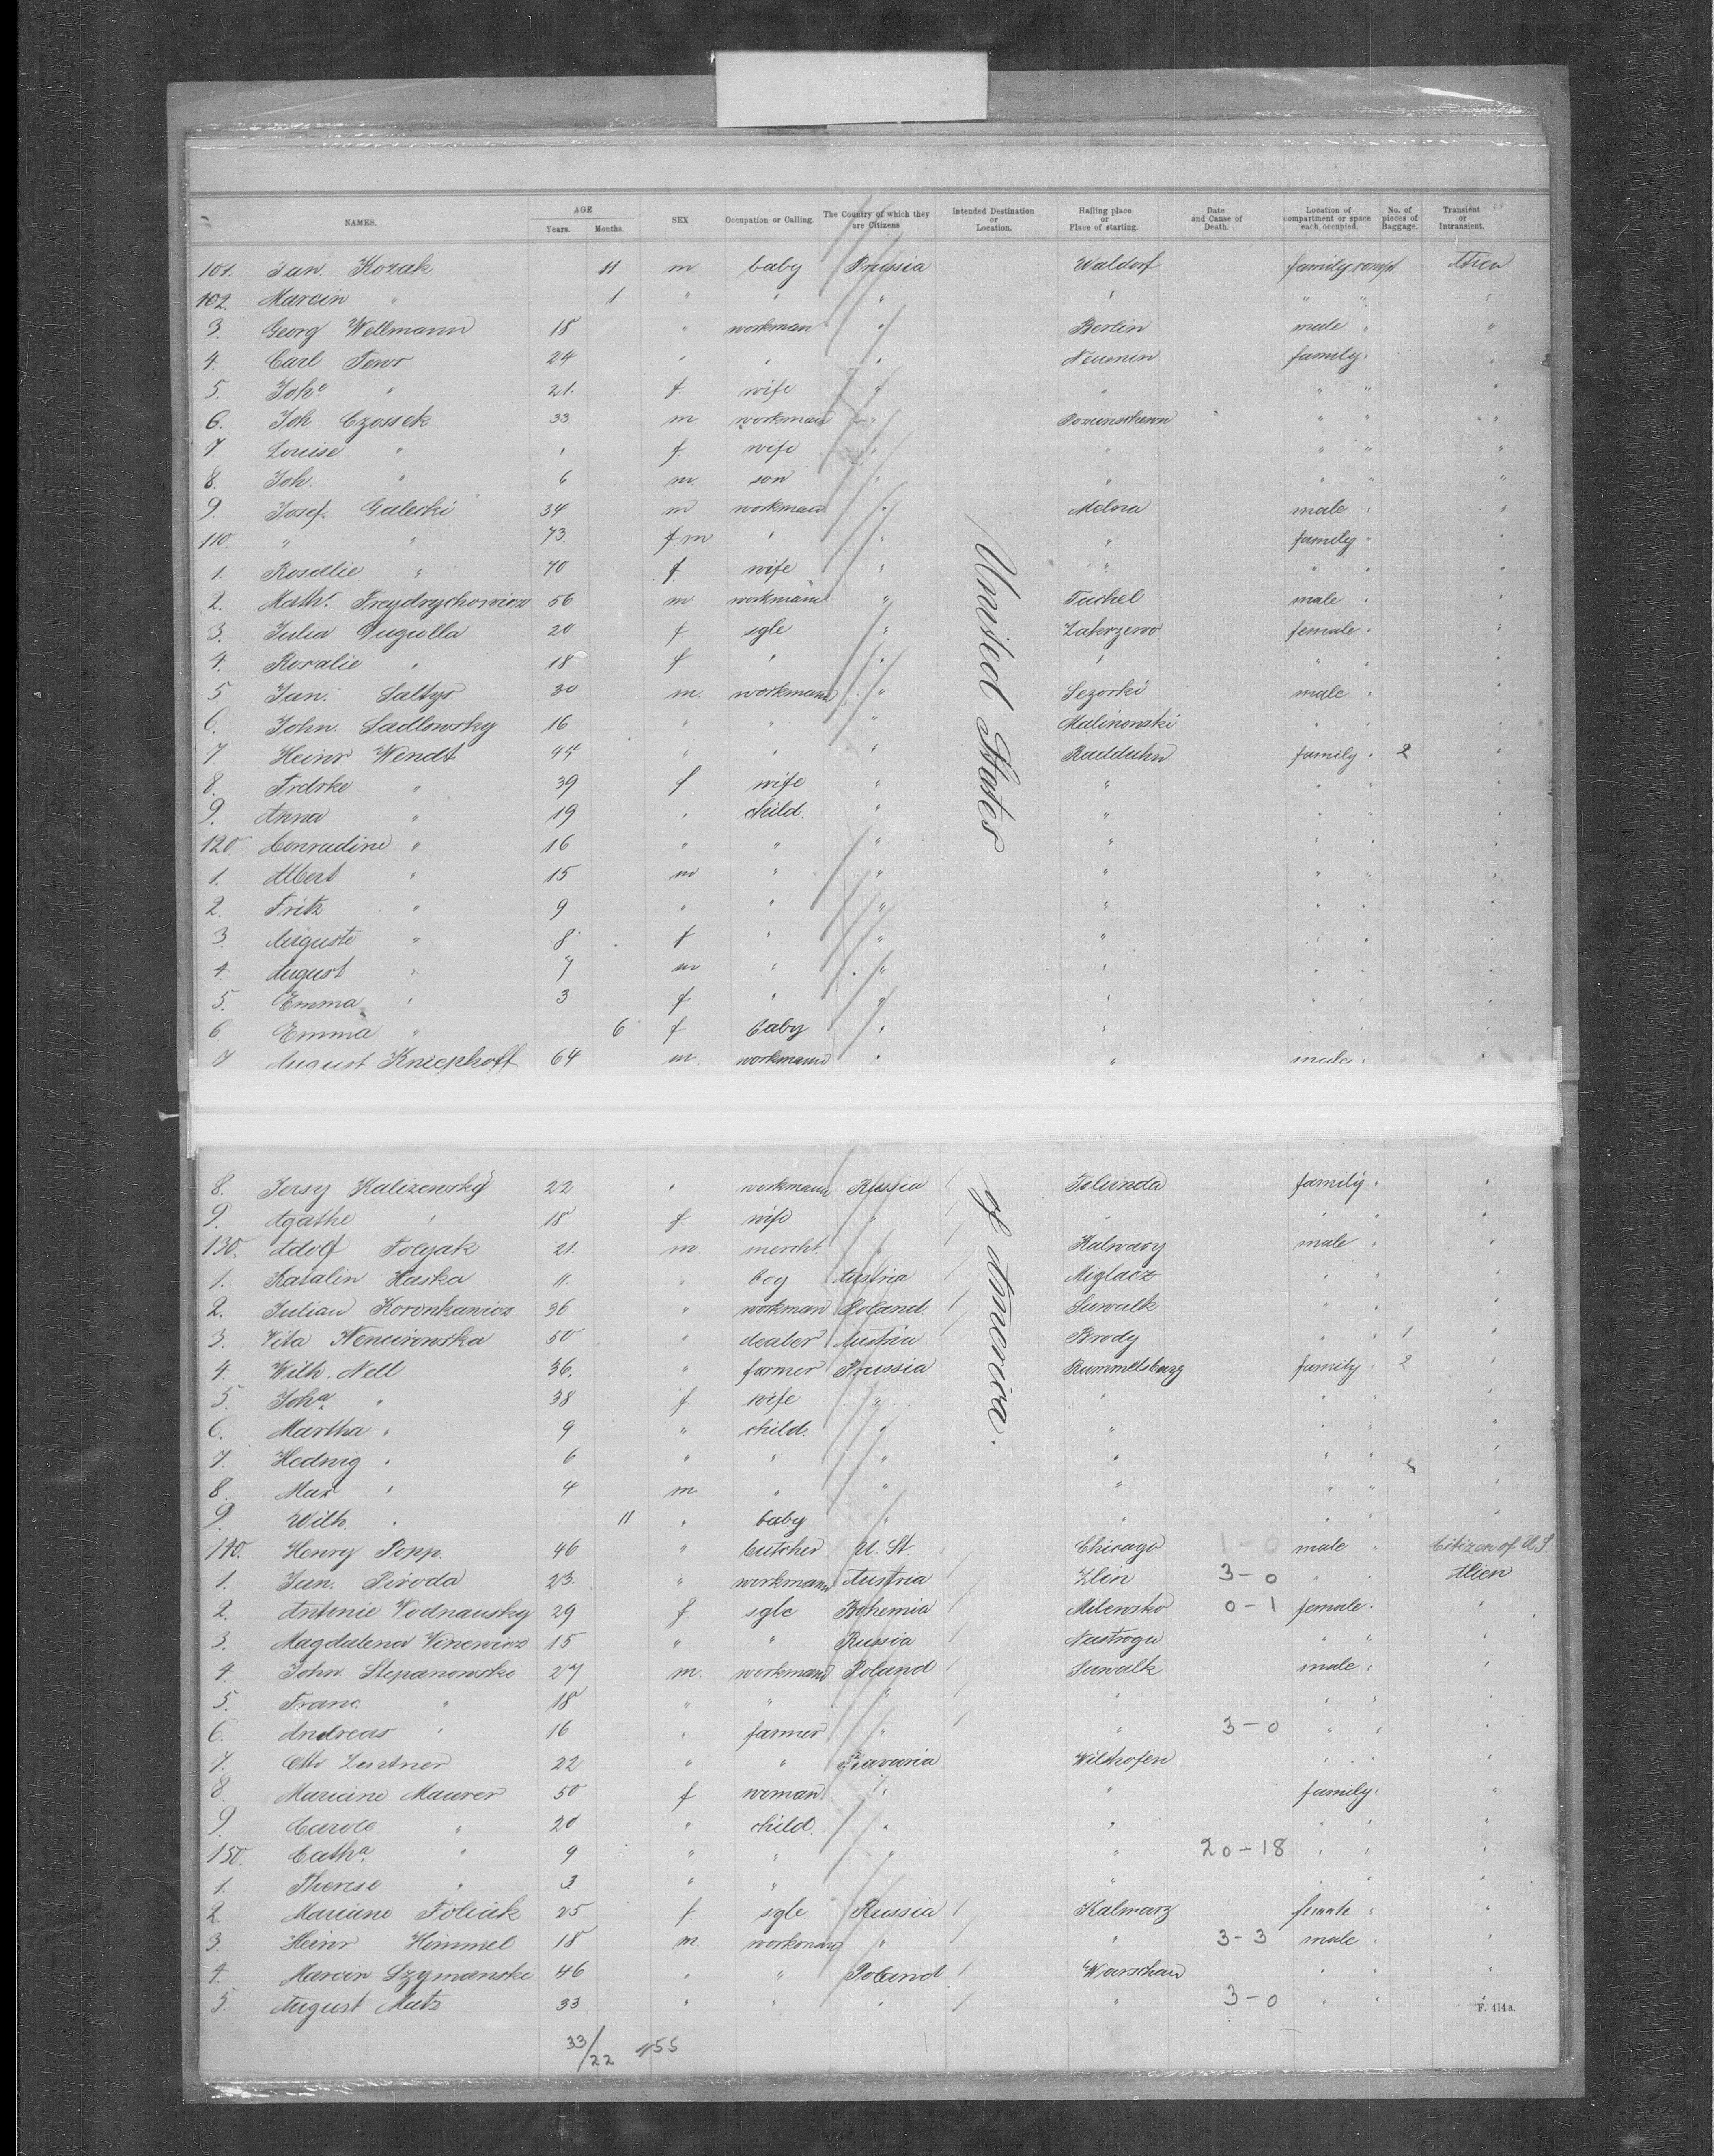 NAMES. AGE Years. Months. SEX Occupation or Calling. The Country of which they are Citizens Intended Destination or Location. Hailing place or Place of starting. Date and Cause of Death. Location of compartment or space each occupied. No. of pieces of Baggage. Transient or Intransient.
101. Jan. Kozak 11 m. baby Prussia Waldorf family compt Alien
102. Marcin " 1 " " " " " " "
3. Georg Wellmann 18 " workman " Berlin male " "
4. Carl 24 " " " family " "
5. Joh.e " 21. f. wife " " " " "
6. Joh Czossek 33 m workman " " " "
7. Louise " " f. wife " " " " "
8. Joh. " 6 m. son " " " " "
9. Josef. Galecki 34 m workman " Melna male " "
110. " " 73. f m " " " family " "
1. Rosalie " 70 f. wife " " " " "
2. Math. Freydrychowicz 56 m workman " Tuchel male " "
3. Julia 20 f sgle " Zakrzewo female " "
4. Rosalie " 18 f. " " " " " "
5 Jan. Saltys 30 m. workmann " male " "
6. John. Sadlowsky 16 " " " Malinonski " " "
7 Heinr Wendt 44 " " " Radduhn family " 2 "
8. Frdrke " 39 f wife " " " " "
9. Anna " 19 " child. " " " " "
120 Conradine " 16 " " " " " " "
1. Albert " 15 m " " " " " "
2. Fritz " 9 " " " " " " "
3. Auguste " 8 f " " " " " "
4. August " 7 m " " " " " "
5. Emma " 3 f " " " " " "
6 Emma " 6 f baby " " " " "
7 August Kniephoff 64 m. workmann " " male " "
United States of America.
8. Jersy Kalizewsky 22 " workmann Russia family " "
9. Agathe " 18 f. wife " " " " "
130. Adolf Tolyak 21. m. mercht. " Kalwary male " "
1. Katalin Haska 11. " boy Austria Miglacz " " "
2. Julian Koronkawicz 36 " workman Poland Suwalk " " "
3. Vita 50 " dealer Austria Brody " " 1 "
4. Wilh. Nell 36. " farmer Prussia Rummelsburg family " 2 "
5. Joh.a " 38 f. wife " " " " "
6. Martha " 9 " child. " " " " "
7. Hedwig " 6 " " " " " " "
8. Max " 4 m. " " " " " "
9. Wilh. " 11 " baby " " " " "
140. Henry Popp. 46 " butcher U. St. Chicago 1-0 male " Citizen of U.S.
1. Jan. Piroda 23. " workmann Austria Zlin 3-0 " " Alien
2. Antonie Vodnausky 29 f. sgle Bohemia Milewsko 0-1 female " "
3. Magdalena Vinewicz 15 " " Russia " " "
4. John. Stepanowski 27 m. workmann Poland Suwalk male " "
5. Franc. " 18 " " " " " " "
6. Andreas " 16 " farmer " " 3-0 " " "
7. Otto Zentner 22 " " Bavaria Vilshofen " " "
8. Mariane Maurer 50 f woman " " family " "
9. Carole " 20 " child. " " " " "
150. Cath.a " 9 " " " " 20-18 " " "
1. Therese " 3 " " " " " " "
2. Mariane Toliak 25 f. sgle Russia Kalwarz female " "
3. Heinr Himmel 18 m. workman " " 3-3 male " "
4. Marcin Szymanski 46 " " Poland Warschau " " "
5. August Mutz 33 " " " " 3-0 " " "
F. 414 a.
33/22 155